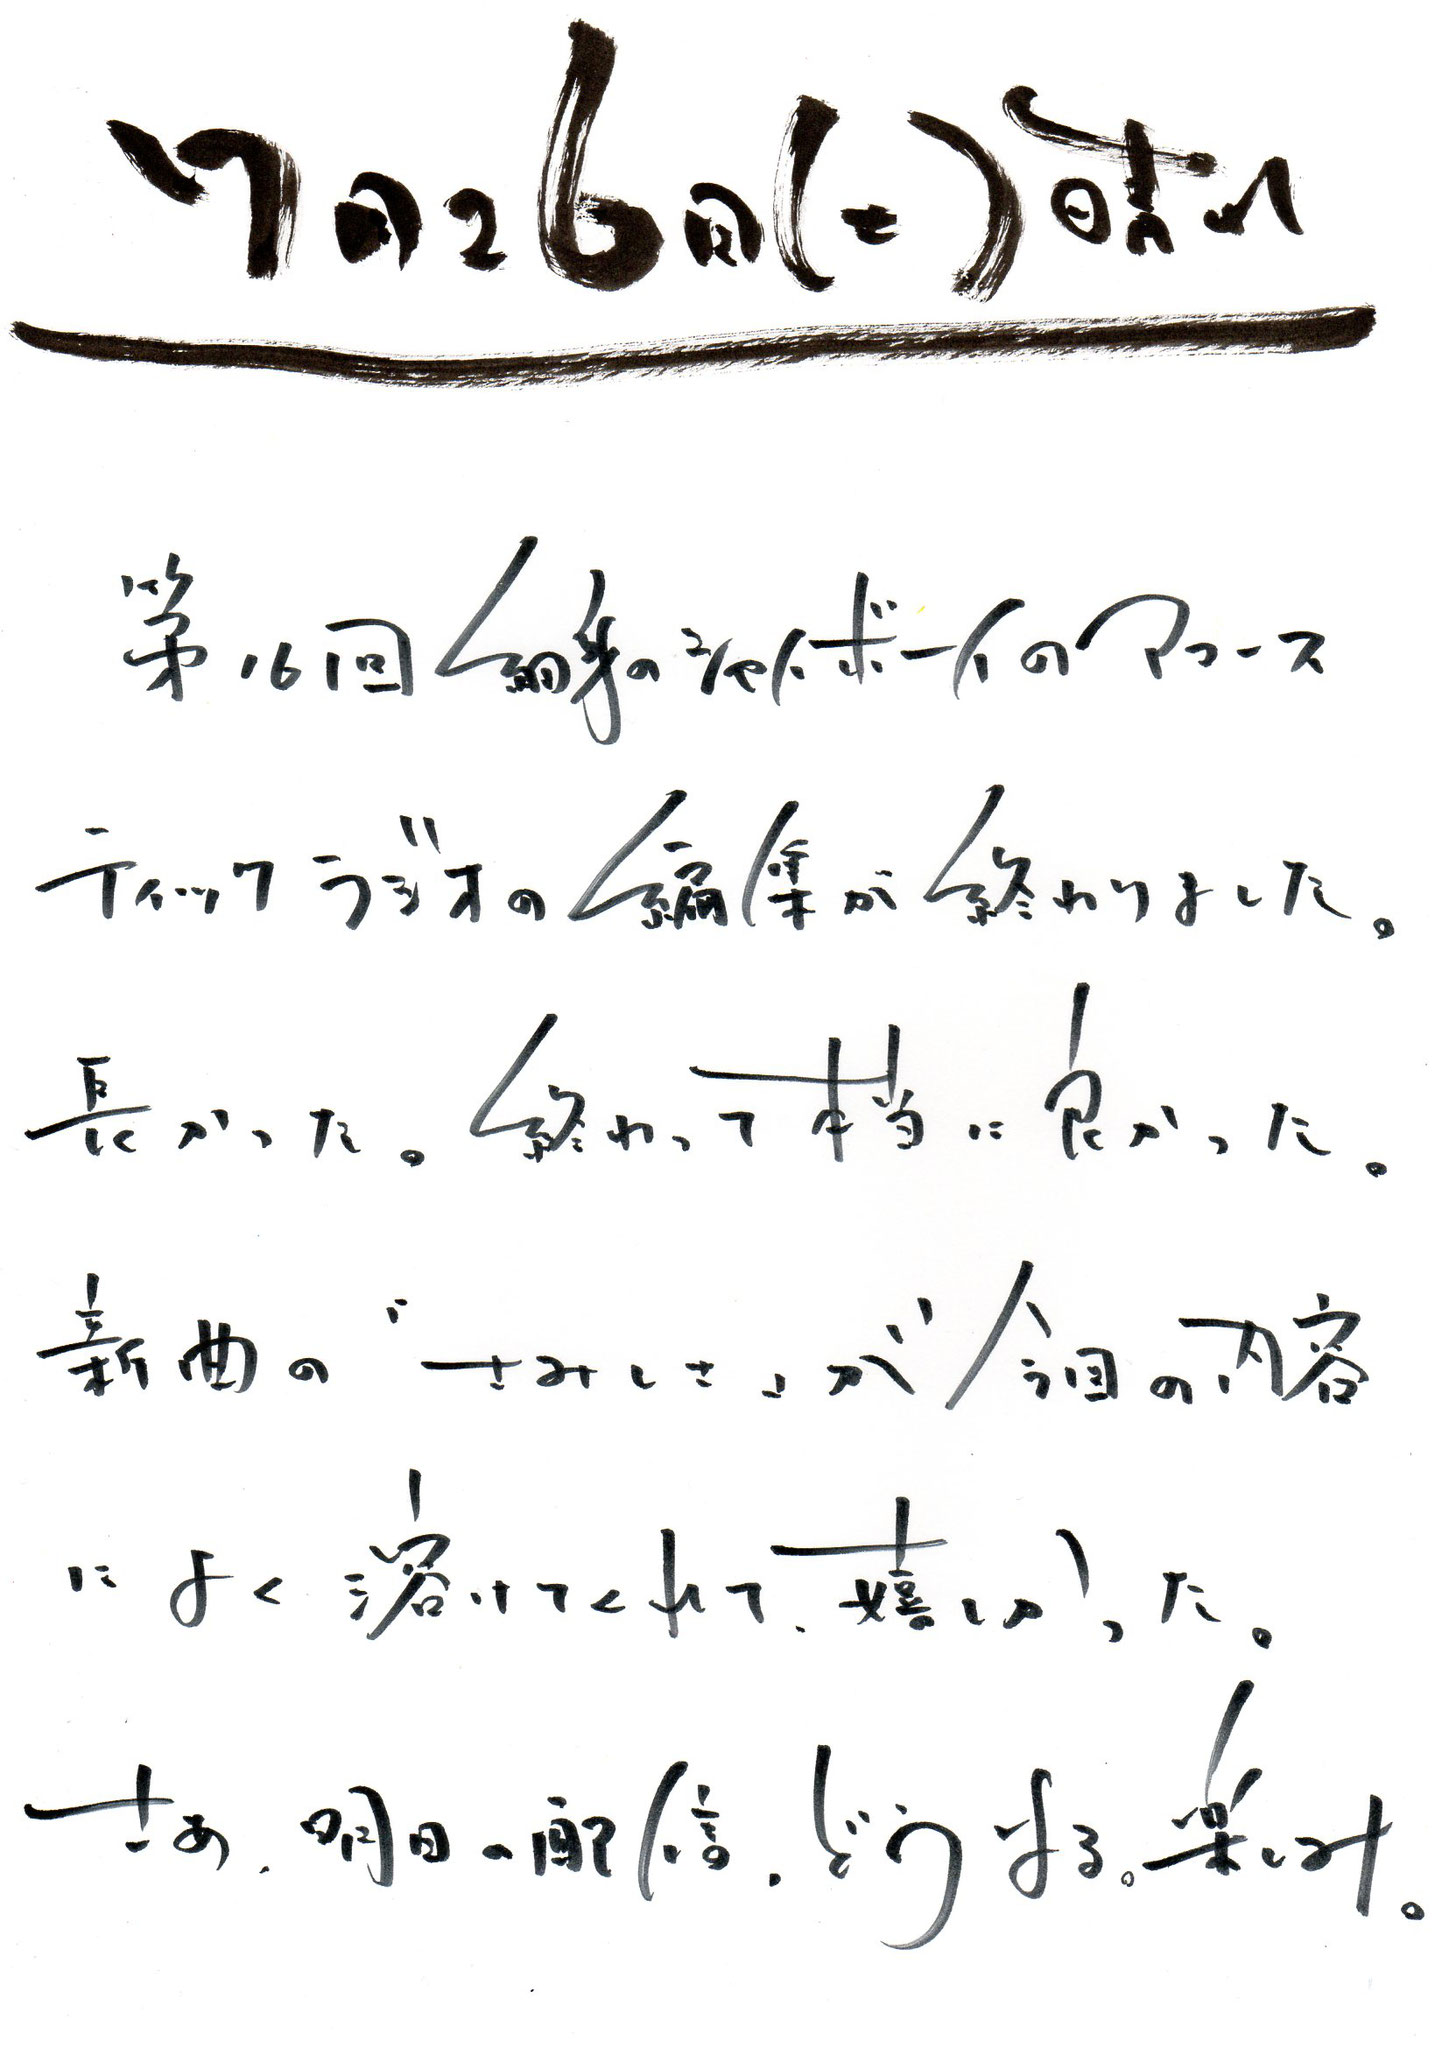 7月26日(土)晴れ
第16回 細身のシャイボーイのアコース
ティックラジオの編集が終わりました。
長かった。終わって本当に良かった。
新曲の「さみしさ」が今回の内容
によく溶けてくれて、嬉しかった。
さあ、明日の配信、どうなる。楽しみ。